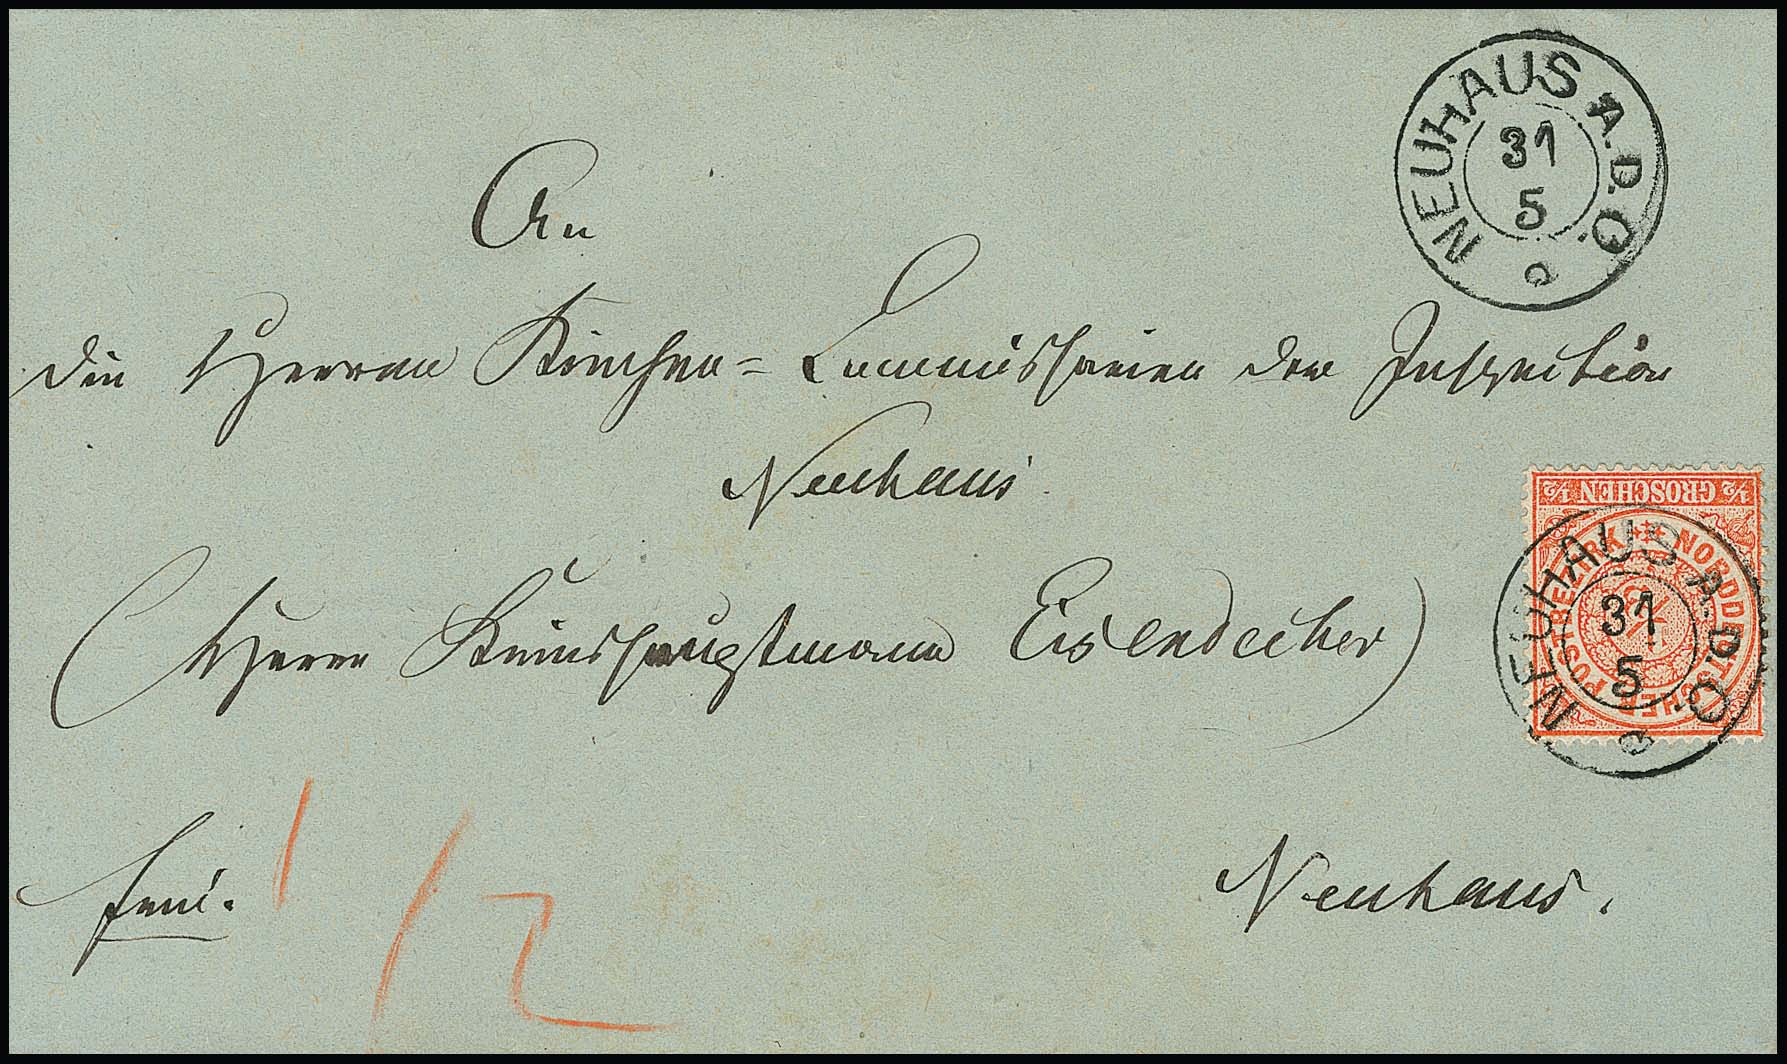 NEUHAUS A.D.O.
31
5
An
die Herren Kirchen-Commissarien der Inspection
Neuhaus
(Herrn Kreishauptmann Eisendecher)
½ GROSCHEN ½
NORDDEUTSCHER POSTBEZIRK
½
NEUHAUS A.D.O.
31
5
frei.
1/2
Neuhaus.